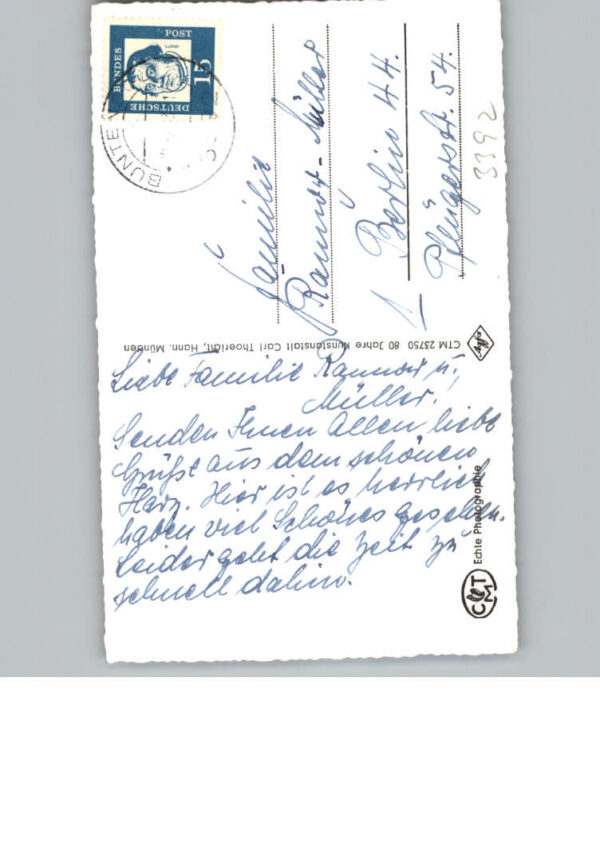 Liebe Familie Rannow u.
Müller!
Senden Ihnen Allen liebe
Grüße aus dem schönen
Harz. Hier ist es herrlich
haben viel Schönes gesehen.
Leider geht die Zeit zu
schnell dahin.
Familie
Rannow-Müller
1 Berlin 44.
Pflügerstr. 54.
3392
CTM 23750 80 Jahre Kunstanstalt Carl Thoericht, Hann. Münden
Agfa
CTM
Echte Photographie
DEUTSCHE
BUNDES
POST
15
Luther
BUNTE